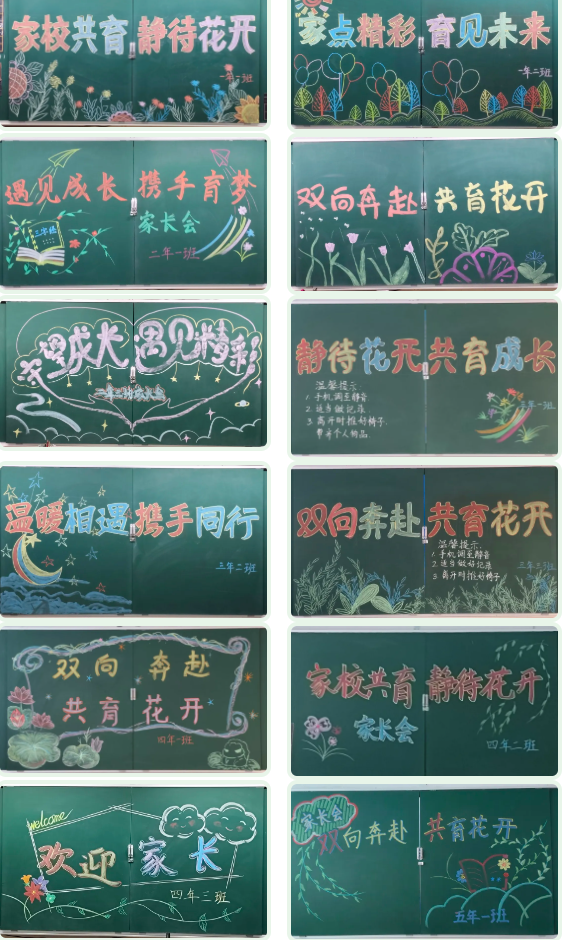 家校共育 静待花开
一年一班
家点精彩 育见未来
一年二班
遇见成长 携手育梦
家长会
二年一班
双向奔赴 共育花开
守望成长 遇见精彩
静待花开 共育成长
温馨提示
1. 手机调至静音
2. 适当做记录
3. 离开时推好椅子.
带齐个人物品
三年一班
温暖相遇 携手同行
三年二班
双向奔赴 共育花开
温馨提示:
1. 手机调至静音
2. 适当做好记录
3. 离开时推好椅子
三年三班
双向 奔赴
共育 花开
四年一班
家校共育 静待花开
家长会
四年二班
welcome
欢迎 家长
四年三班
家长会
双向奔赴 共育花开
五年一班